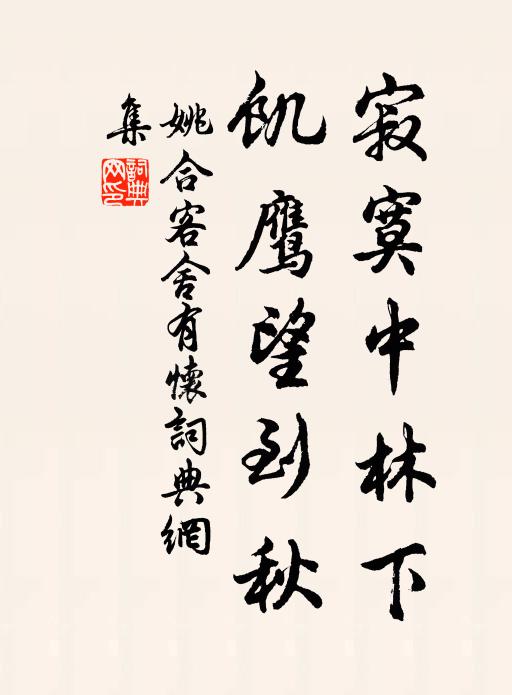 寂寞中林下
飢鷹望到秋
姚合客舍有懷詞典網
集
詞典網印